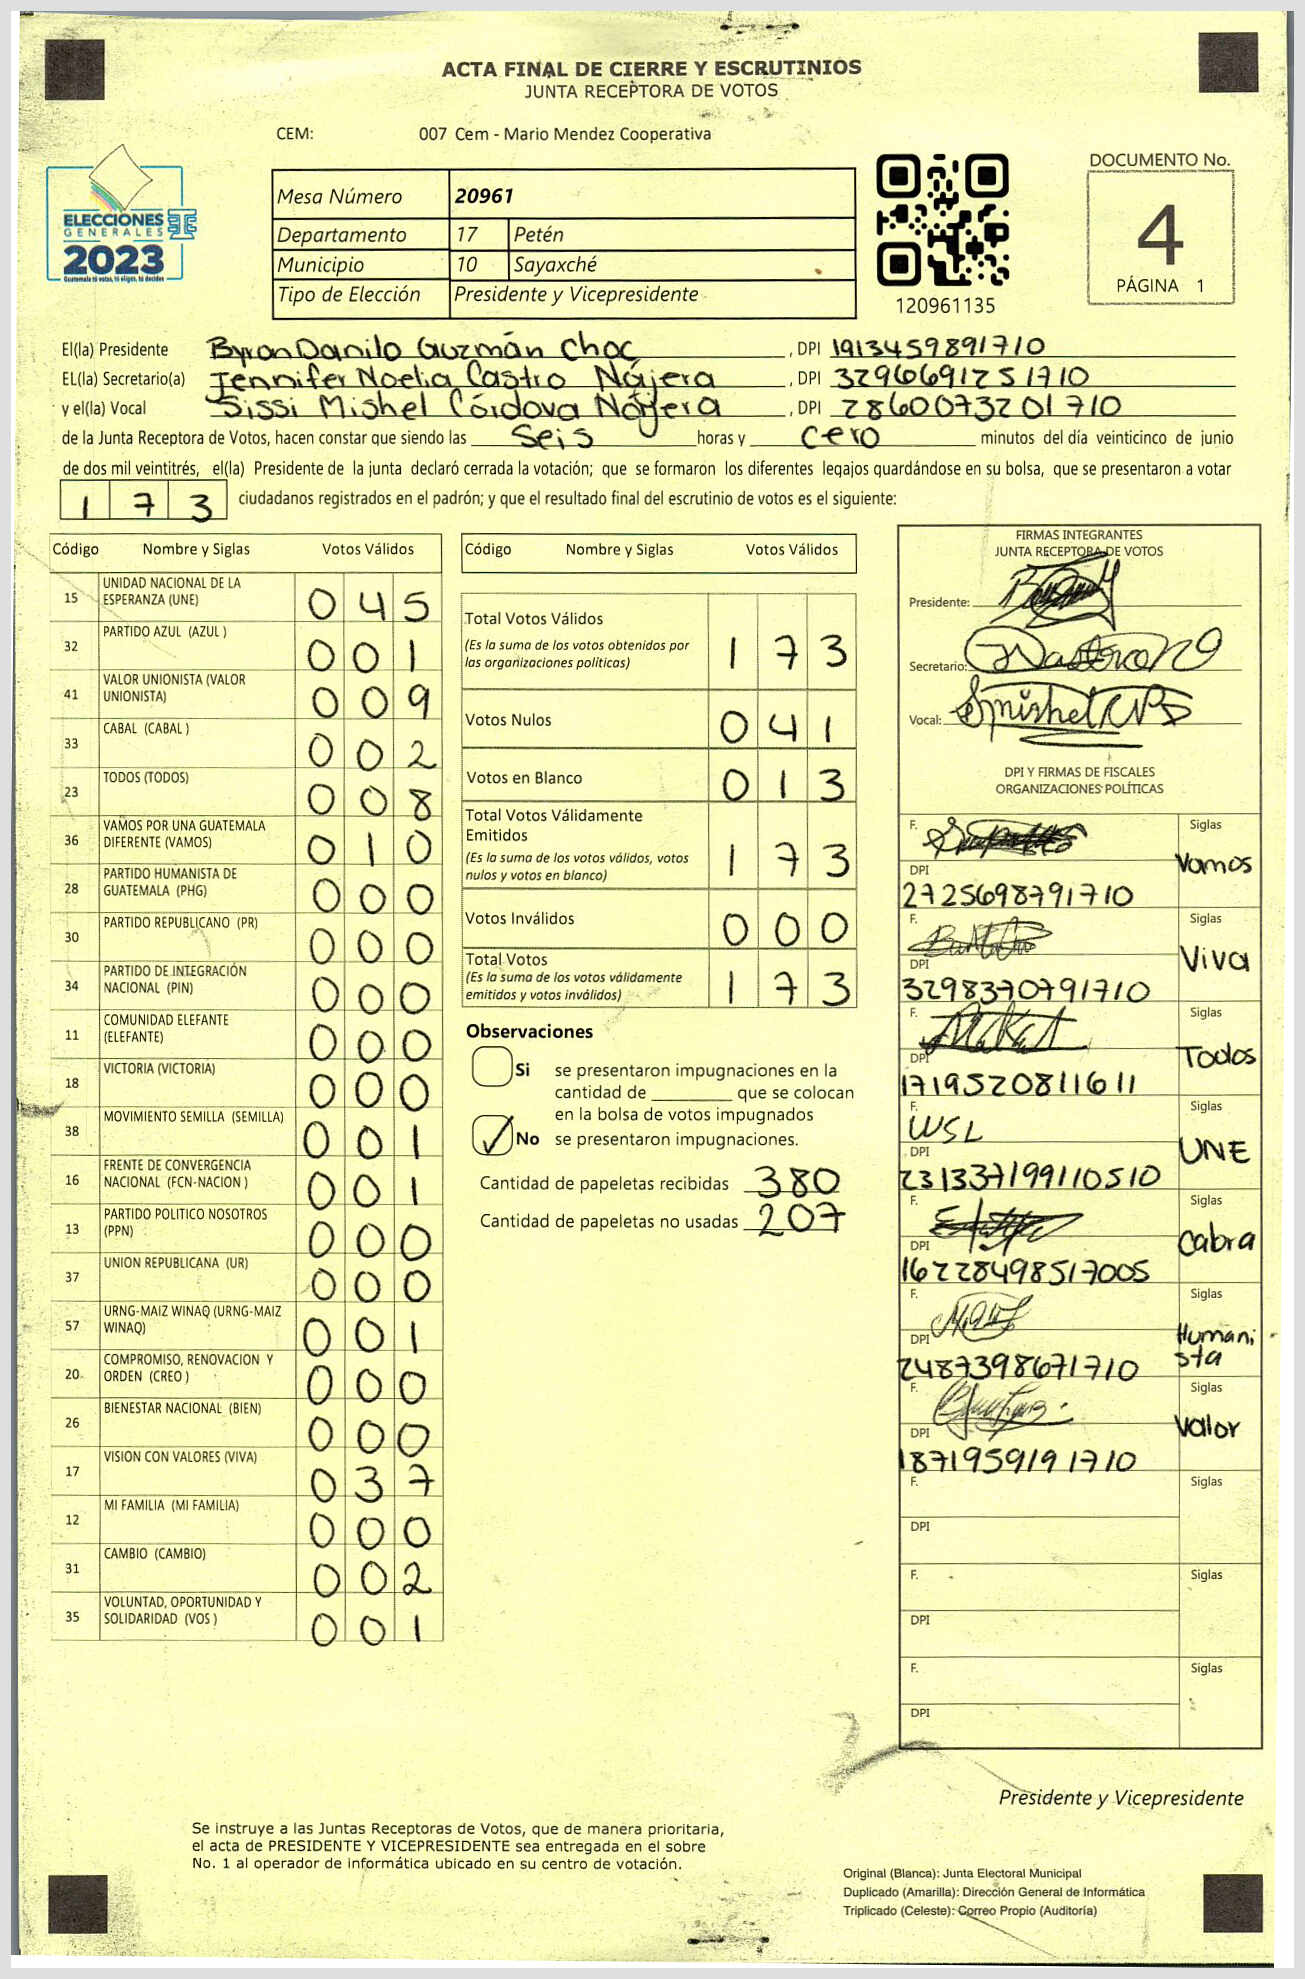 ACTA FINAL DE CIERRE Y ESCRUTINIOS
JUNTA RECEPTORA DE VOTOS
CEM: 007 Cem - Mario Mendez Cooperativa
ELECCIONES
GENERALES
2023
Guatemala tú votas, tú eliges, tú decides
Mesa Número 20961
Departamento 17 Petén
Municipio 10 Sayaxché
Tipo de Elección Presidente y Vicepresidente
120961135
DOCUMENTO No.
4
PÁGINA 1
El(la) Presidente Byron Danilo Guzmán Choc, DPI 1913459891710
EL(la) Secretario(a) Jennifer Noelia Castro Nájera, DPI 3296691251710
y el(la) Vocal Sissi Mishel Córdova Nájera, DPI 2860073201710
de la Junta Receptora de Votos, hacen constar que siendo las Seis horas y cero minutos del día veinticinco de junio
de dos mil veintitrés, el(la) Presidente de la junta declaró cerrada la votación; que se formaron los diferentes legajos quardándose en su bolsa, que se presentaron a votar
173 ciudadanos registrados en el padrón; y que el resultado final del escrutinio de votos es el siguiente:
Código Nombre y Siglas Votos Válidos
15 UNIDAD NACIONAL DE LA ESPERANZA (UNE) 045
32 PARTIDO AZUL (AZUL ) 001
41 VALOR UNIONISTA (VALOR UNIONISTA) 009
33 CABAL (CABAL ) 002
23 TODOS (TODOS) 008
36 VAMOS POR UNA GUATEMALA DIFERENTE (VAMOS) 010
28 PARTIDO HUMANISTA DE GUATEMALA (PHG) 000
30 PARTIDO REPUBLICANO (PR) 000
34 PARTIDO DE INTEGRACIÓN NACIONAL (PIN) 000
11 COMUNIDAD ELEFANTE (ELEFANTE) 000
18 VICTORIA (VICTORIA) 000
38 MOVIMIENTO SEMILLA (SEMILLA) 001
16 FRENTE DE CONVERGENCIA NACIONAL (FCN-NACION ) 001
13 PARTIDO POLITICO NOSOTROS (PPN) 000
37 UNION REPUBLICANA (UR) 000
57 URNG-MAIZ WINAQ (URNG-MAIZ WINAQ) 001
20 COMPROMISO, RENOVACION Y ORDEN (CREO ) 000
26 BIENESTAR NACIONAL (BIEN) 000
17 VISION CON VALORES (VIVA) 037
12 MI FAMILIA (MI FAMILIA) 000
31 CAMBIO (CAMBIO) 002
35 VOLUNTAD, OPORTUNIDAD Y SOLIDARIDAD (VOS ) 001
Código Nombre y Siglas Votos Válidos
Total Votos Válidos
(Es la suma de los votos obtenidos por
las organizaciones políticas) 173
Votos Nulos 041
Votos en Blanco 013
Total Votos Válidamente
Emitidos
(Es la suma de los votos válidos, votos
nulos y votos en blanco) 173
Votos Inválidos 000
Total Votos
(Es la suma de los votos válidamente
emitidos y votos inválidos) 173
Observaciones
Si se presentaron impugnaciones en la
cantidad de ________ que se colocan
en la bolsa de votos impugnados
No se presentaron impugnaciones.
Cantidad de papeletas recibidas 380
Cantidad de papeletas no usadas 207
FIRMAS INTEGRANTES
JUNTA RECEPTORA DE VOTOS
Presidente:
Secretario:
Vocal:
DPI Y FIRMAS DE FISCALES
ORGANIZACIONES POLÍTICAS
F. Siglas
Vamos
DPI
2725698791710
F. Siglas
Viva
DPI
3298370791710
F. Siglas
Todos
DPI
1719520811611
F. Siglas
WSL
UNE
DPI
231337199110510
F. Siglas
Cabra
DPI
16228498517005
F. Siglas
Humani
sta
DPI
2487398671710
F. Siglas
Valor
DPI
1871959191710
F. Siglas
DPI
F. Siglas
DPI
F. Siglas
DPI
Presidente y Vicepresidente
Se instruye a las Juntas Receptoras de Votos, que de manera prioritaria,
el acta de PRESIDENTE Y VICEPRESIDENTE sea entregada en el sobre
No. 1 al operador de informática ubicado en su centro de votación.
Original (Blanca): Junta Electoral Municipal
Duplicado (Amarilla): Dirección General de Informática
Triplicado (Celeste): Correo Propio (Auditoría)